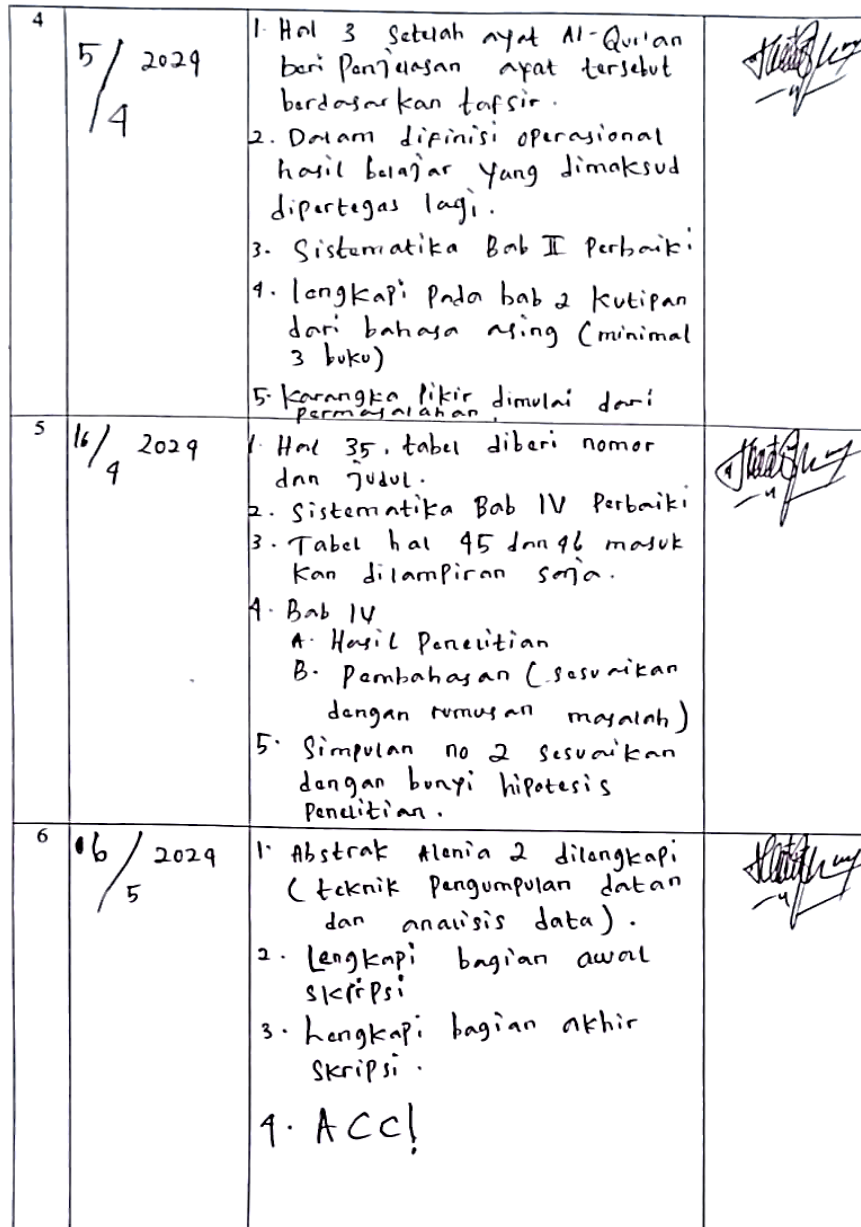 4
5/4 2024
1. Hal 3 Setelah ayat Al-Qur'an
beri Penjelasan ayat tersebut
berdasarkan tafsir.
2. Dalam difinisi operasional
hasil belajar yang dimaksud
dipertegas lagi.
3. Sistematika Bab II Perbaiki
4. lengkapi Pada bab 2 Kutipan
dari bahasa asing (minimal
3 buku)
5. Karangka pikir dimulai dari
permasalahan.
5
16/4 2024
1. Hal 35, tabel diberi nomor
dan judul.
2. Sistematika Bab IV Perbaiki
3. Tabel hal 45 dan 46 masuk
kan dilampiran saja.
4. Bab IV
A. Hasil Penelitian
B. Pembahasan (sesuaikan
dengan rumusan masalah)
5. Simpulan no 2 sesuaikan
dengan bunyi hipotesis
Penelitian.
6
06/5 2024
1. Abstrak Alenia 2 dilengkapi
(teknik Pengumpulan datan
dan analisis data).
2. Lengkapi bagian awal
skripsi
3. Lengkapi bagian akhir
skripsi.
4. ACC!